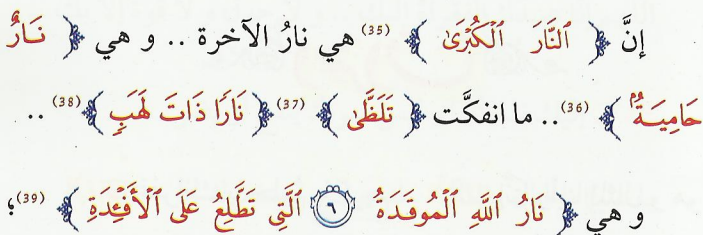 إنَّ ﴿ ٱلنَّارَ ٱلْكُبْرَىٰ ﴾ (35) هي نارُ الآخرة .. و هي ﴿ نَارٌ
حَامِيَةٌۢ ﴾ (36) .. ما انفكَّت ﴿ تَلَظَّىٰ ﴾ (37) ﴿ نَارًا ذَاتَ لَهَبٍ ﴾ (38) ..
و هي ﴿ نَارُ ٱللَّهِ ٱلْمُوقَدَةُ ٦ ٱلَّتِي تَطَّلِعُ عَلَى ٱلْأَفْـِٔدَةِ ﴾ (39) ؛